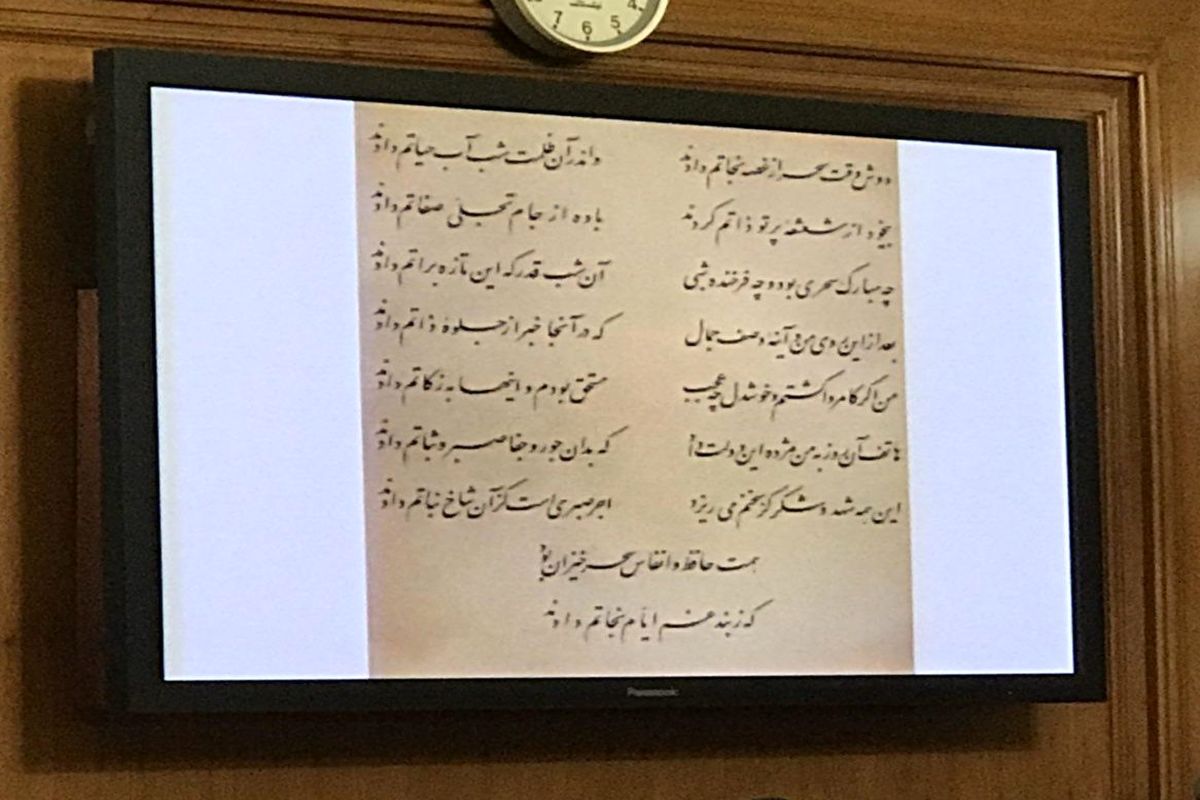 7 6 5 4
دوش وقت سحر از غصه نجاتم دادند واندر آن ظلمت شب آب حیاتم دادند
بیخود از شعشعهٔ پرتو ذاتم کردند باده از جام تجلی صفاتم دادند
چه مبارک سحری بود و چه فرخنده شبی آن شب قدر که این تازه براتم دادند
بعد از این روی من و آینهٔ وصف جمال که در آنجا خبر از جلوهٔ ذاتم دادند
من اگر کامروا گشتم و خوشدل چه عجب مستحق بودم و اینها به زکاتم دادند
هاتف آن روز به من مژده این دولت داد که بدان جور و جفا صبر و ثباتم دادند
این همه شهد و شکر کز سخنم می ریزد اجر صبری است کز آن شاخ نباتم دادند
همت حافظ و انفاس سحرخیزان بود
که ز بند غم ایام نجاتم دادند
Panasonic